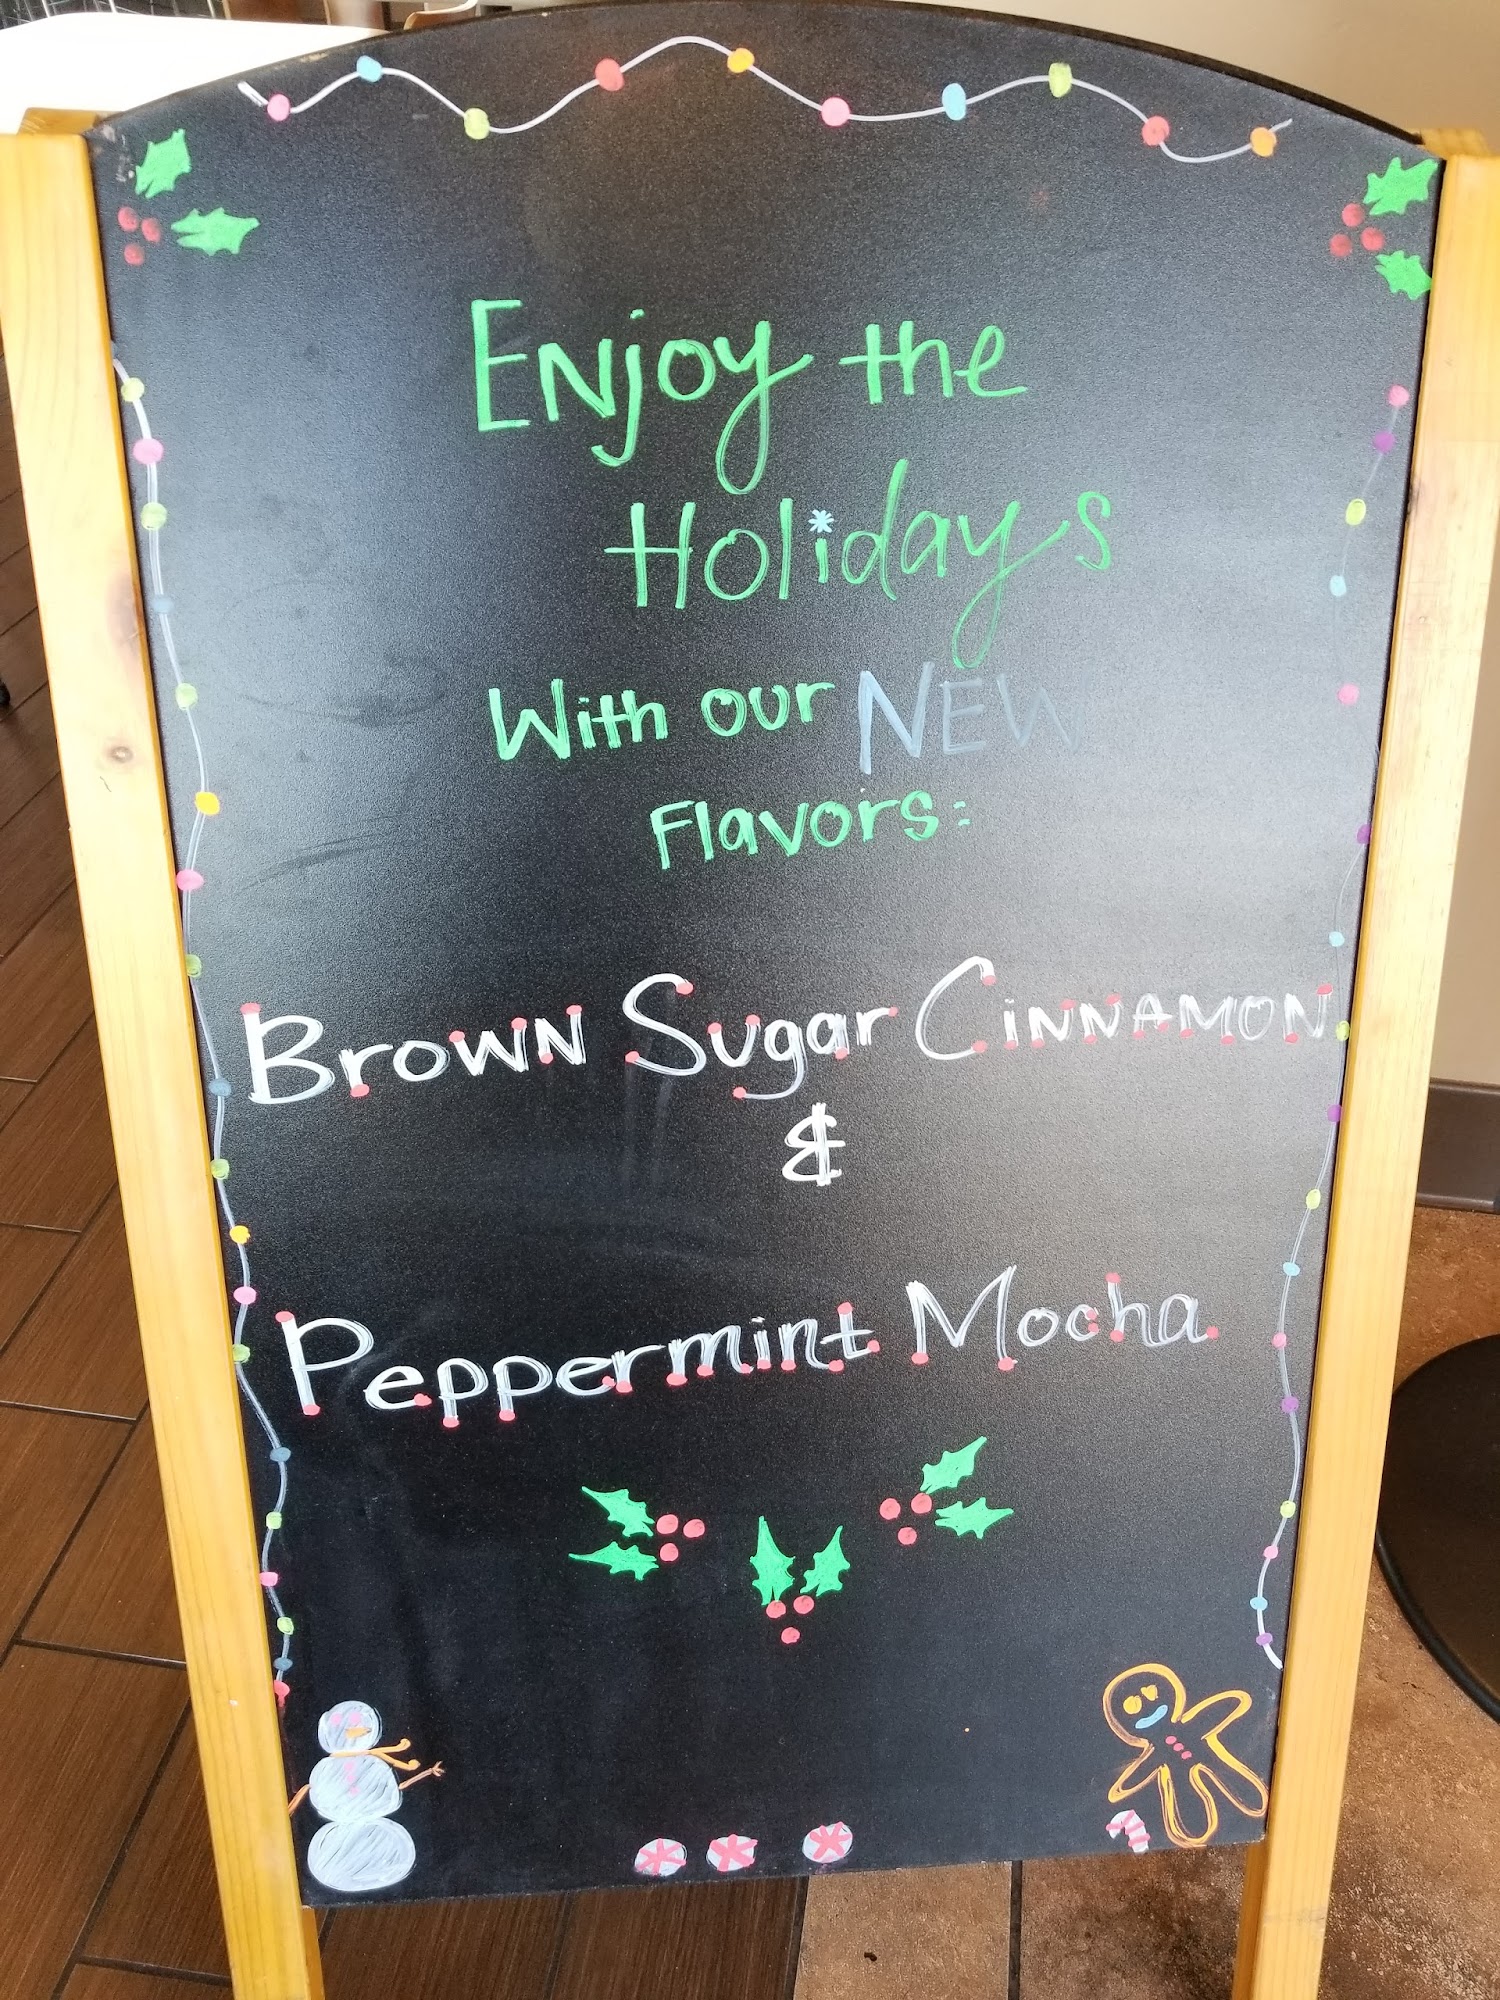 Enjoy the
Holidays
With our NEW
Flavors:
Brown Sugar Cinnamon
&
Peppermint Mocha